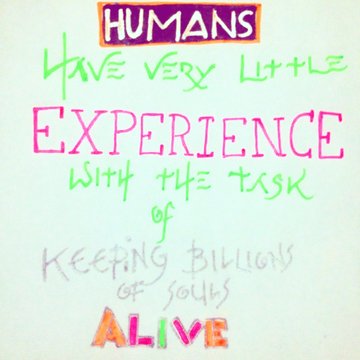 HUMANS
HAVE VERY LITTLE
EXPERIENCE
WITH THE TASK
of
KEEPiNG BILLIONS
OF SOULS
ALIVE